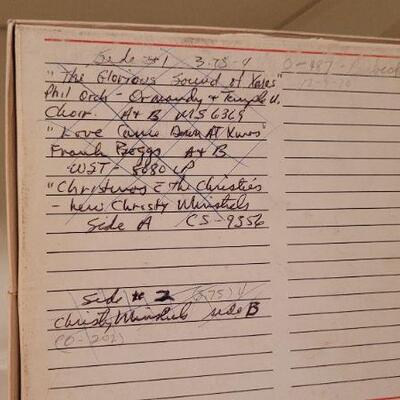 Side #1 3.75-4
"The Glorious Sound of Xmas"
Phil Orch - Ormandy & Temple U.
Choir. A&B MS 6369
"Love Came Down At Xmas"
Frank Boggs A&B
WST-8080 LP
"Christmas c̄ The Christies"
- New Christy Minstrels
Side A CS-9356
Side #2 (3.75) 4
Christy Minstrels side B
(O-202)
0-487-
12-9-70